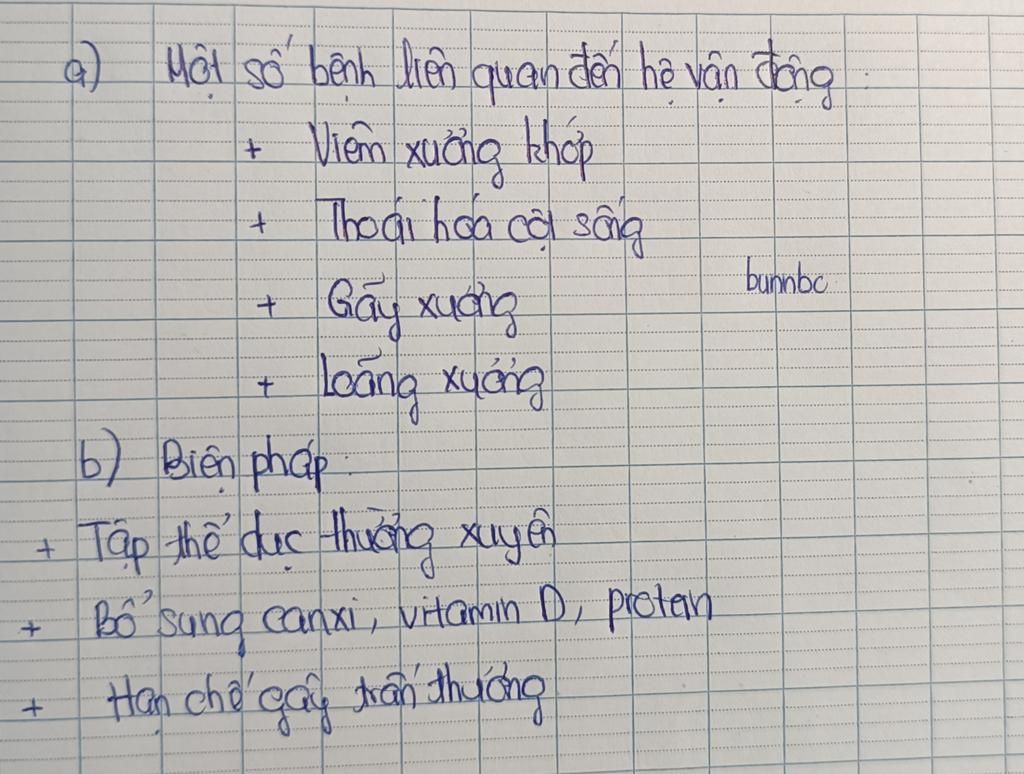 a) Một số bệnh liên quan đến hệ vận động :
+ Viêm xương khớp
+ Thoái hóa cột sống
bunnbc
+ Gãy xương
+ Loãng xương
b) Biện pháp :
+ Tập thể dục thường xuyên
+ Bổ sung canxi, vitamin D, protein
+ Hạn chế gây trấn thương